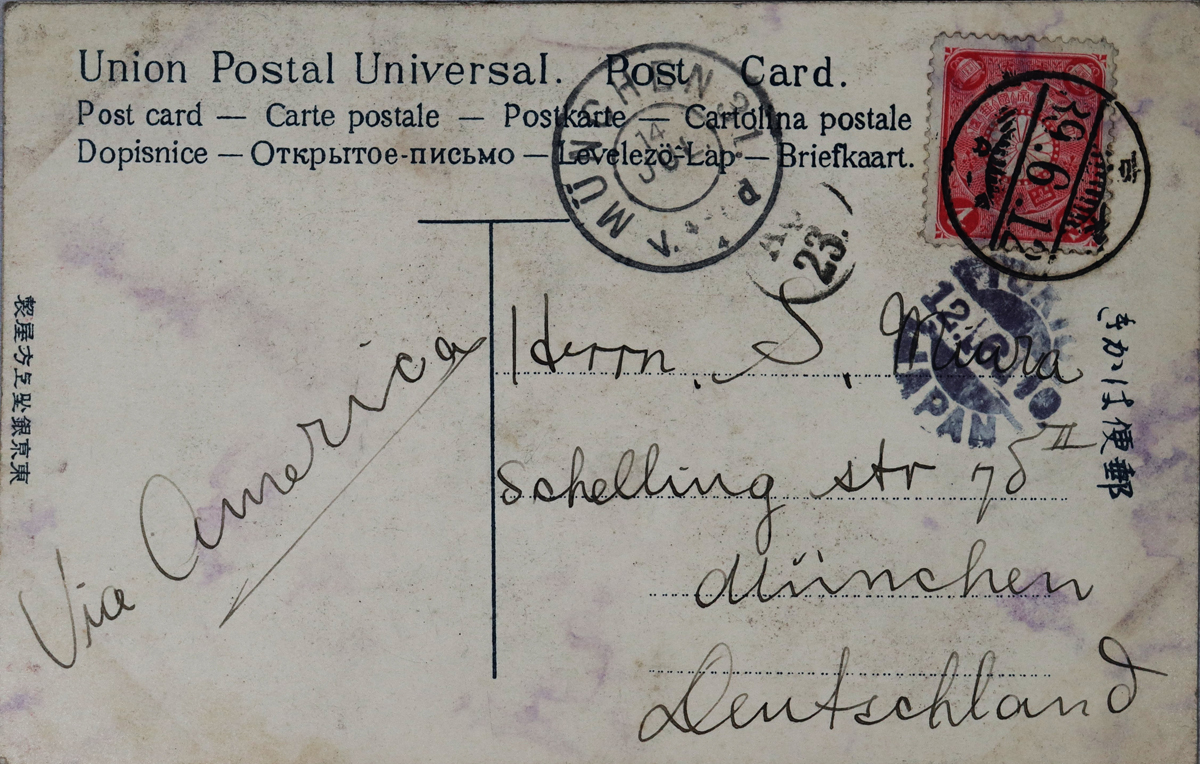 Union Postal Universal. Post Card.
Post card — Carte postale — Postkarte — Cartolina postale
Dopisnice — Открытое-письмо — Levelezö-Lap — Briefkaart.
MÜNCHEN 31
14
V.
23.
39.6.12
12.6.
JAPAN
Via America
Herrn. S. Miura
Schelling str 78 II
München
Deutschland
東京銀座上方屋製
郵便はかき